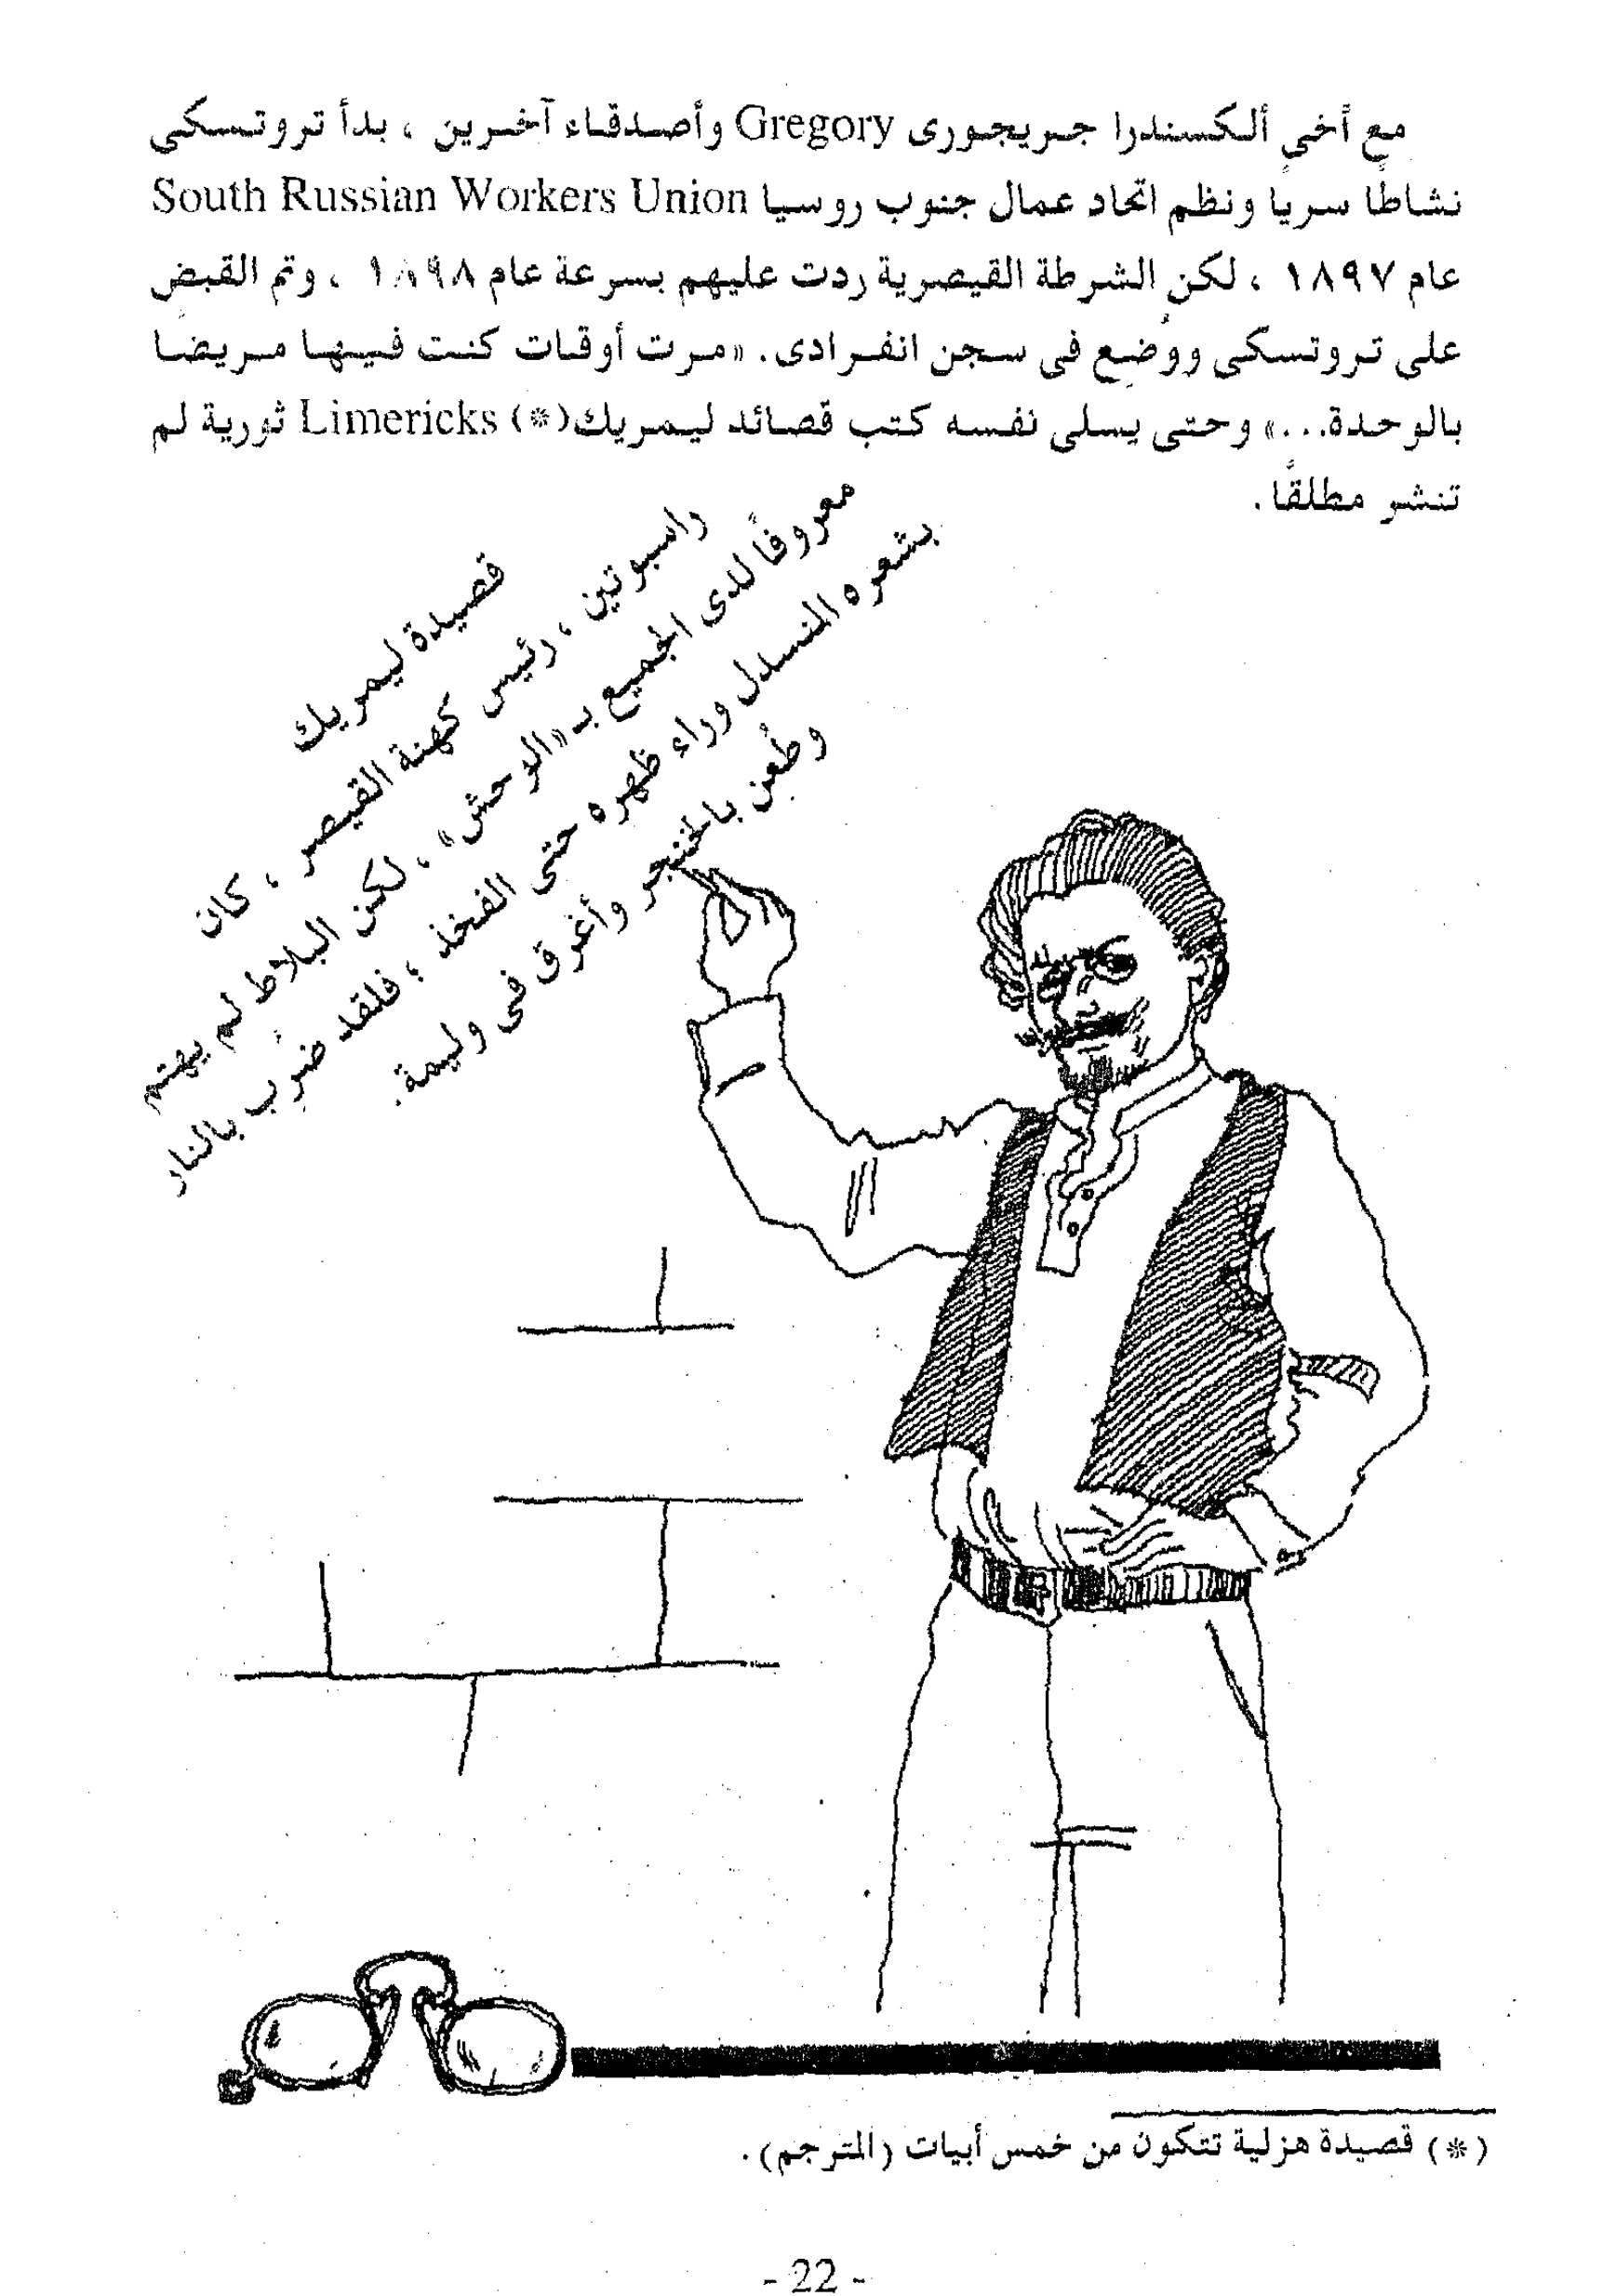 مع أخي ألكسندرا جريجورى Gregory وأصدقاء آخرين ، بدأ تروتسكي
نشاطًا سريًا ونظم اتحاد عمال جنوب روسيا South Russian Workers Union
عام ١٨٩٧ ، لكن الشرطة القيصرية ردت عليهم بسرعة عام ١٨٩٨ ، وتم القبض
على تروتسكى ووُضع فى سجن انفرادى. «مرت أوقات كنت فيها مريضا
بالوحدة...» وحتى يسلى نفسه كتب قصائد ليمريك(*) Limericks ثورية لم
تنشر مطلقًا.
قصيدة ليمريك
راسبوتين ، رئيس كهنة القيصر ، كان
معروفًا لدى الجميع بـ «الوحش» ، لكن البلاط لم يهتم
بشعره المنسدل وراء ظهره حتى الفخذ ؛ فلقد ضُرب بالنار
وطُعن بالخنجر وأغرق فى وليمة.
(*) قصيدة هزلية تتكون من خمس أبيات (المترجم).
- 22 -